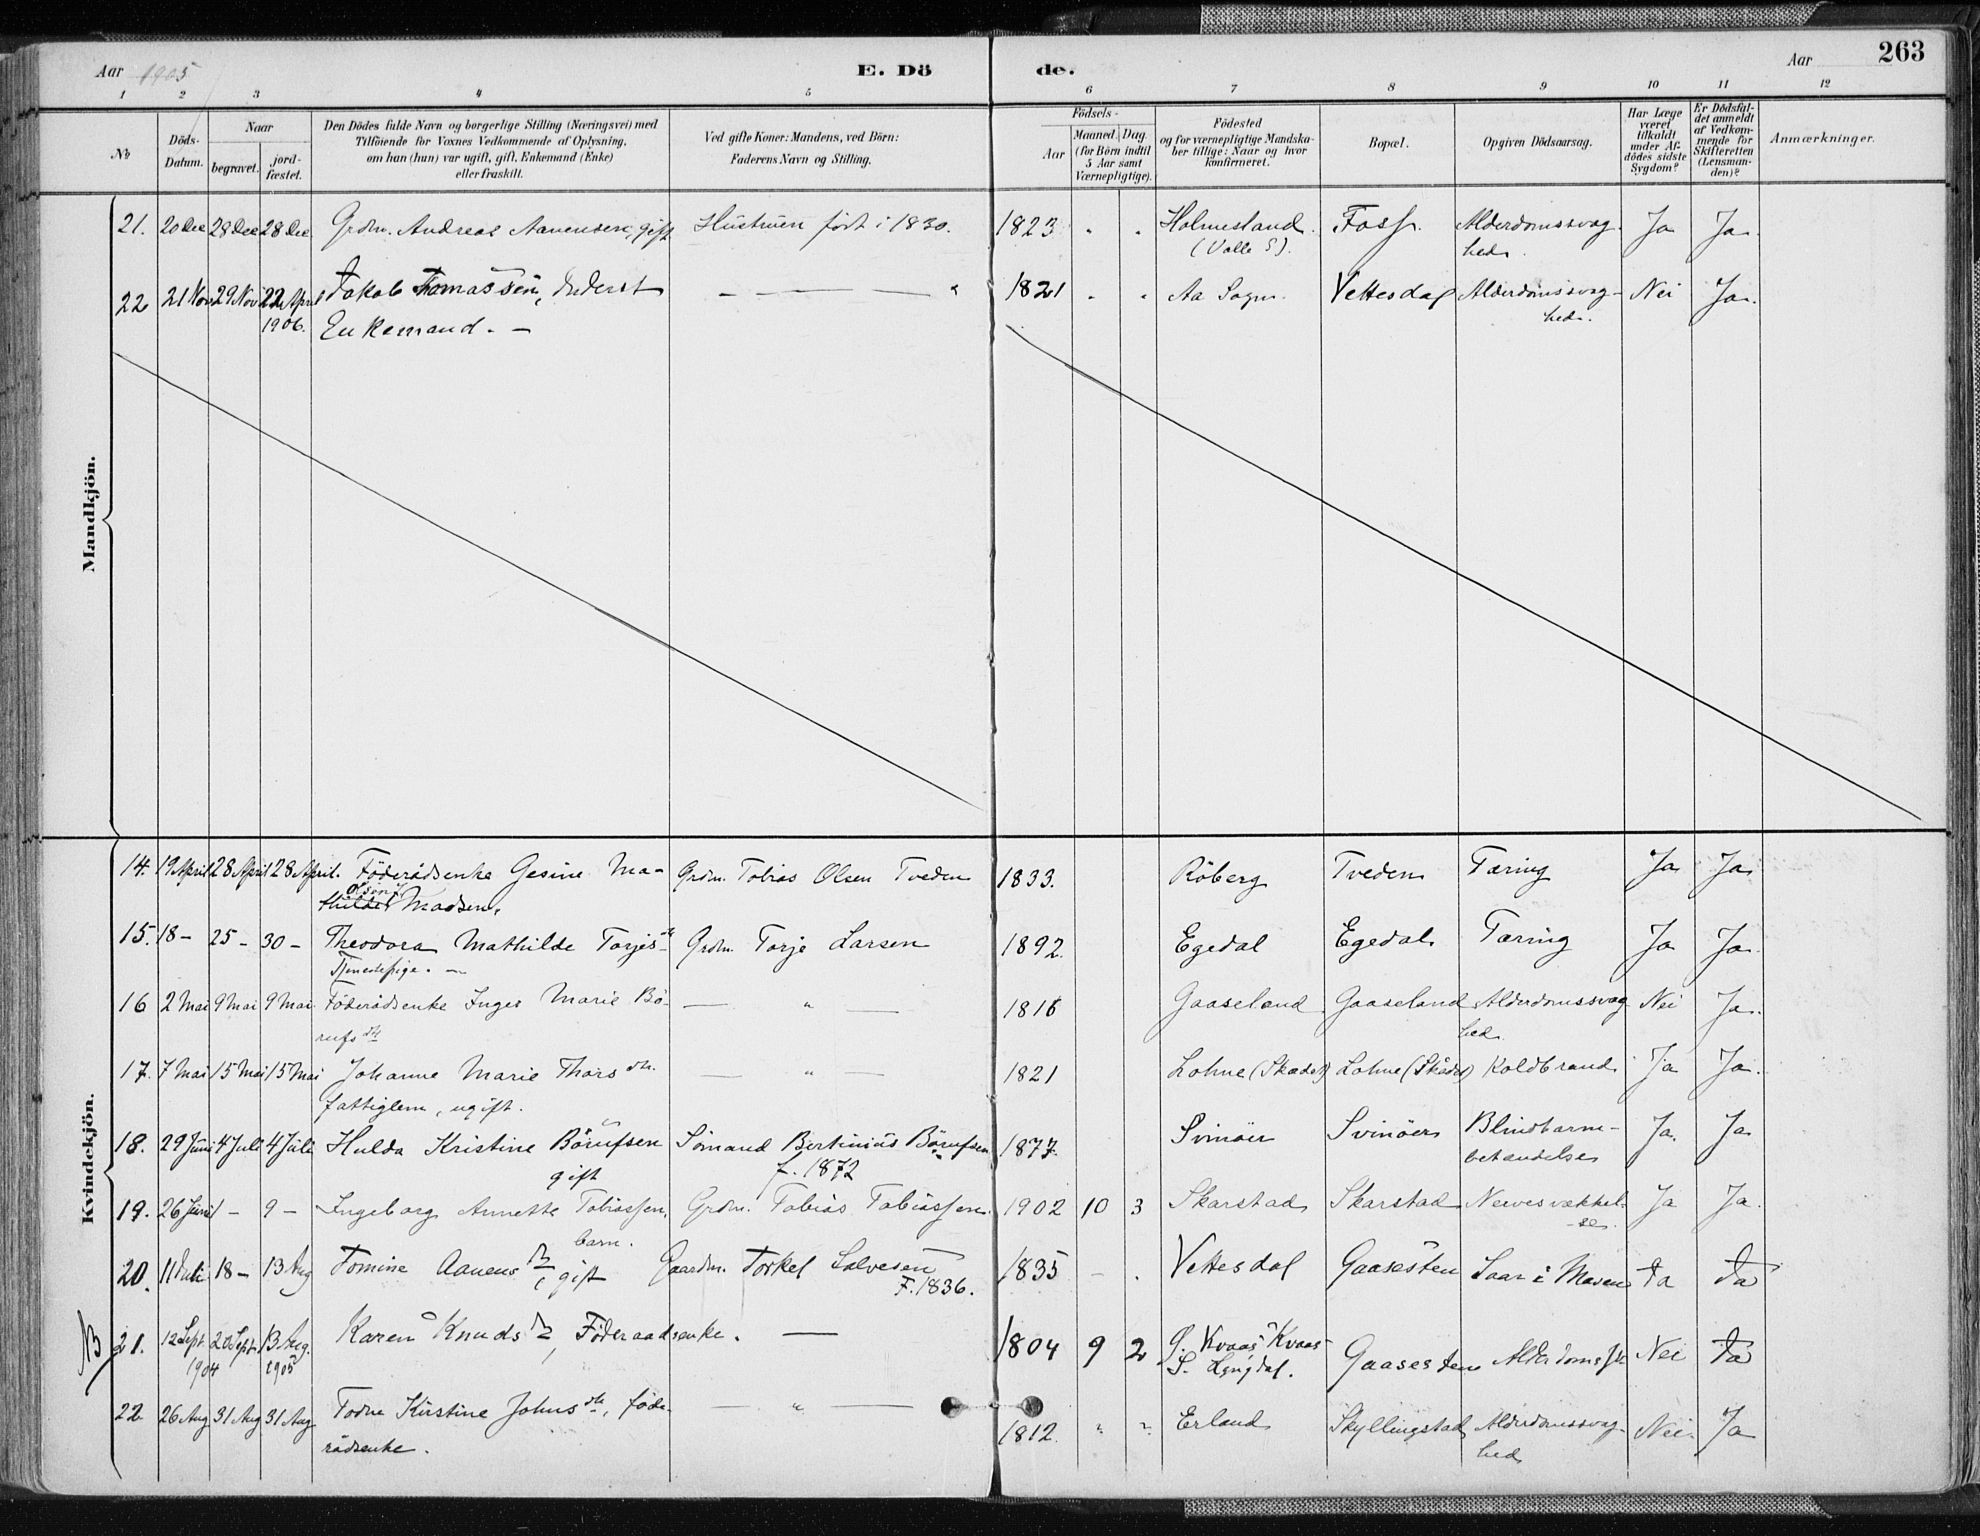 Aar 1905 E. Dö de. Aar 263
1 2 3 4 5 6 7 8 9 10 11 12
No
Döds-Datum.
Naar
begravet.
jord-fæstet.
Den Dödes fulde Navn og borgerlige Stilling (Næringsvei) med
Tilföiende for Voxnes Vedkommende af Oplysning,
om han (hun) var ugift, gift, Enkemand (Enke)
eller fraskilt.
Ved gifte Koner: Mandens, ved Börn:
Faderens Navn og Stilling.
Födsels-
Aar
Maaned. Dag.
(for Börn indtil
5 Aar samt
Værnepligtige).
Födested
og for værnepligtige Mandska-
ber tillige: Naar og hvor
konfirmeret.
Bopæl.
Opgiven Dödsaarsag.
Har Læge
været
tilkaldt
under Af-
dödes sidste
Sygdom?
Er Dödsfal-
det anmeldt
af Vedkom-
mende for
Skifteretten
(Lensman-
den)?
Anmærkninger.
Mandkjön.
21. 20 Dec 28 Dec 28 Dec. Grdm. Andreas Aanensen, gift Hustruen født i 1830. 1823 Holmesland Foss Alderdomssvag- Ja Ja.
(Valle S). hed.
22 21 Nov 29 Nov 22 April Jakob Tomassen, Inderst — — — " 1821 Aa Sogn. Vettesdal Alderdomssvag- Nei Ja.
1906. Enkemand. — hed.
Kvindekjön.
14. 19 April 28 April 28 April. Föderådsenke Gesine Ma- Grdm. Tobias Olsen Tveden 1833. Röberg Tveden Tæring Ja Ja
thilde Madsen.
15. 18 — 25 — 30 — Theodora Mathilde Torjesdtr Grdm. Torje Larsen 1892. Egedal Egedal Tæring Ja Ja.
Tjenestepige. —
16 2 Mai 9 Mai 9 Mai Föderådsenke Inger Marie Bö- — " — 1816 Gaaseland Gaaseland Alderdomssvag Nei Ja.
rufsdtr hed.
17. 7 Mai 15 Mai 15 Mai Johanne Marie Thorsdtr. — " — 1821 Lohne (Skadet) Lohne (Skådet) Koldbrand Ja Ja.
fattiglem, ugift.
18. 29 Juni 4 Juli 4 Juli Hulda Kristine Börufsen Sömand Bertinius Börufsen 1877. Svinöer Svinöer Blindtarm- Ja. Ja
gift f. 1872 betændelse
19. 26 Juni 1 — 9 — Ingeborg Annette Tobiassen, Grdm. Tobias Tobiassen 1902 10 3 Skarstad Skarstad Nervesvækkel- Ja Ja.
barn. se.
20. 11 Juli 18 — 13 Aug Tomine Aanensdtr, gift Gaardm. Torkel Salvesen 1835 — . Vettesdal Gaasesten Saar i Maven Ja Ja
F. 1836.
NB 21. 12 Sept 20 Sept. 13 Aug. Karen Knudsdtr, Föderaadsenke. — 1804 9 2 G. Kvaas Kvaas Gaasesten Alderdomssv. Nei Ja
1904 1905 S. Lyngdal.
22 26 Aug 31 Aug 31 Aug Todne Kirstine Johnsdtr, föde- — " — 1812. " " Erland Skyllingstad Alderdomssvag- Nei. Ja
rådsenke. hed